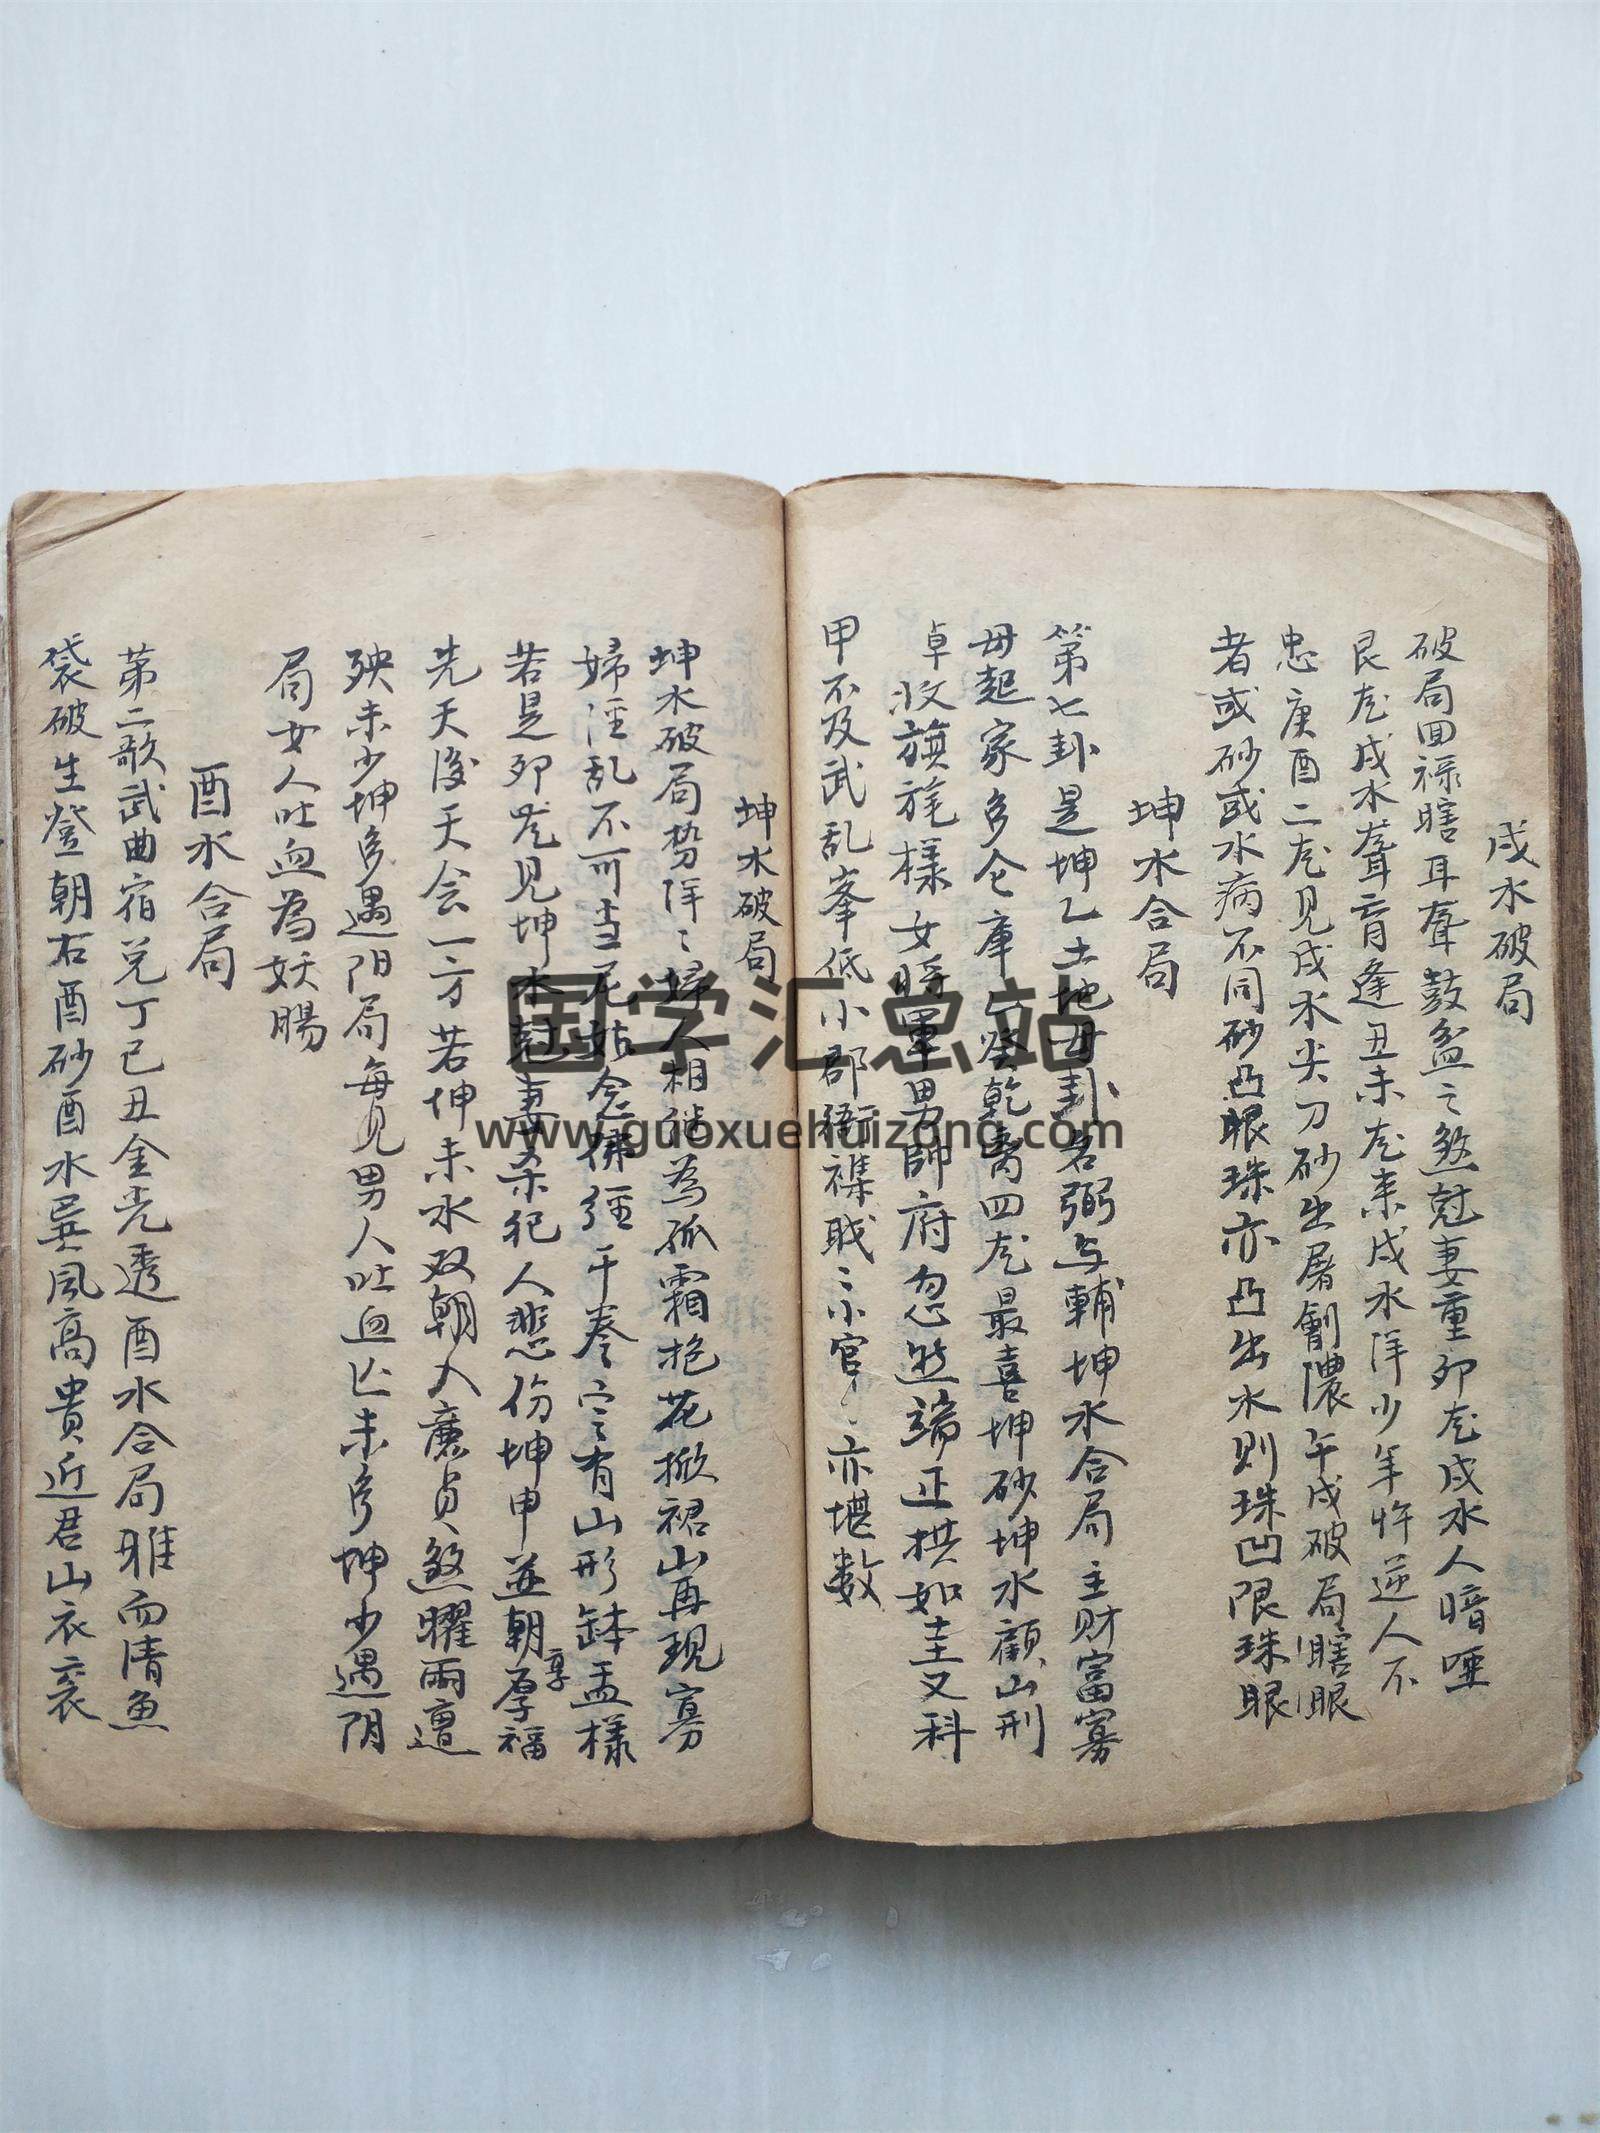 戌水破局
破局回祿瞎耳聋鼓盆之煞尅妻重卯龙戌水人暗哑
艮龙戌水聋盲逢丑未龙来戌水洋少年忤逆人不
忠庚酉二龙见戌水尖刀砂出屠劊膿午戌破局瞎眼
者或砂或水病不同砂凸眼珠亦凸出水则珠凹限珠眼
坤水合局
第七卦是坤乙土地母卦名弼与輔坤水合局主财富寡
母起家多仓庫癸乾离四龙最喜坤砂坤水顧山刑
卓收旗旄様女将軍男帥府忽逃端正拱如圭又科
甲不及武乱峯低小郡衙襍職〻小官〻亦堪数
坤水破局
坤水破局势洋〻婦人相继為孤霜抱花掀裙山再现寡
婦淫乱不可当尼姑念佛經千卷定有山形缽盂様
若是卯龙见坤水尅妻杀犯人悲伤坤申並朝享厚福
先天後天会一方若坤未水双朝入廉贞煞曜兩邉
殃未少坤多遇阳局每见男人吐血亡未多坤少遇阴
局女人吐血為妖腸
酉水合局
第二歌武曲宿兑丁巳丑金光透酉水合局雅而清魚
袋破生登朝右酉砂酉水巽風高貴近君山衣衮
国学汇总站
www.guoxuehuizong.com